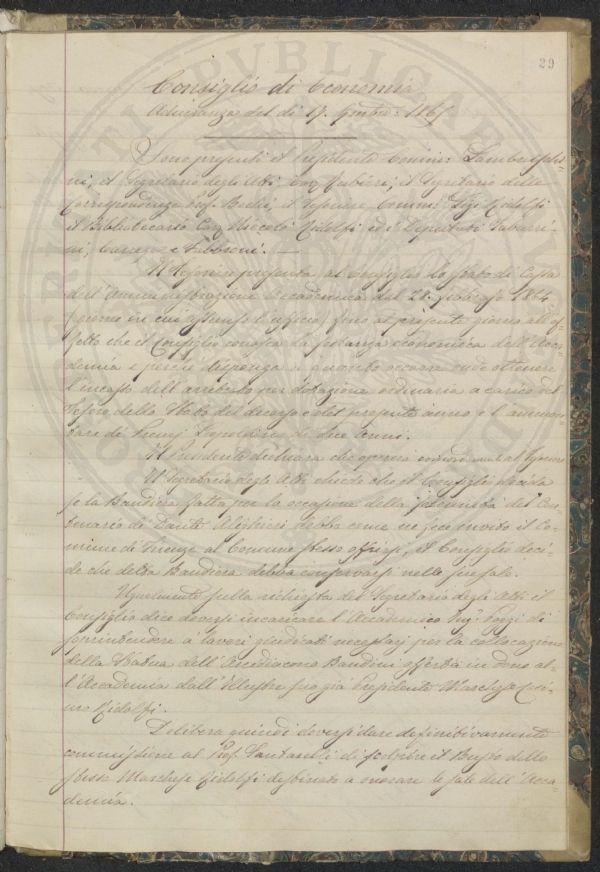 29
Consiglio di Economia
Adunanza del dì 17. 9mbre 1865
Sono presenti il Presidente Comm: Lambruschi-
ni, il Segretario degli Atti Cav. Rubieri; il Segretario delle
Corrispondenze Prof. il Tesoriere Comm: Luigi Ridolfi
il Bibliotecario Cav. Niccolò Ridolfi ed i Deputati Tabarri-
ni, e Fabbroni. —
Il Tesoriere presenta al Consiglio lo Stato di Cassa
dell'Amministrazione Accademica dal 21. Febbraio 1864
(giorno in cui assunse l'ufficio) fino al presente giorno all'ef-
fetto che il Consiglio conosca la economica dell'Acca-
demia e perchè disponga quanto occorre onde ottenere
l'incasso dell'arretrato per dotazione ordinaria a carico del
Tesoro dello Stato del decorso e del presente anno e l'ammon-
tare di Premj Leopoldini di due anni.
Il Presidente dichiara che opererà al Tesoriere
Il Segretario degli Atti chiede che il Consiglio decida
se la Bandiera fatta per la occasione della solennità del Cen-
tenario di Dante Alighieri debba come ne fece invito il Co-
mune di Firenze al Comune stesso offrirsi, il Consiglio deci-
de che detta Bandiera debba conservarsi nelle sue sale.
Ugualmente sulla richiesta del Segretario degli Atti il
Consiglio dice doversi incaricare l'Accademico Ing.e Pozzi di
sorintendere a lavori giudicati necessarj per la collocazione
della Statua dell'Arcidiacono Bandini offerta in dono al-
l'Accademia dall'Illustre suo già Presidente Marchese Cosi-
mo Ridolfi.
Delibera quindi doversi dare definitivamente
commissione al Prof. Santarelli di scolpire il Busto dello
stesso Marchese Ridolfi destinato a ornare le sale dell'Acca-
demia.